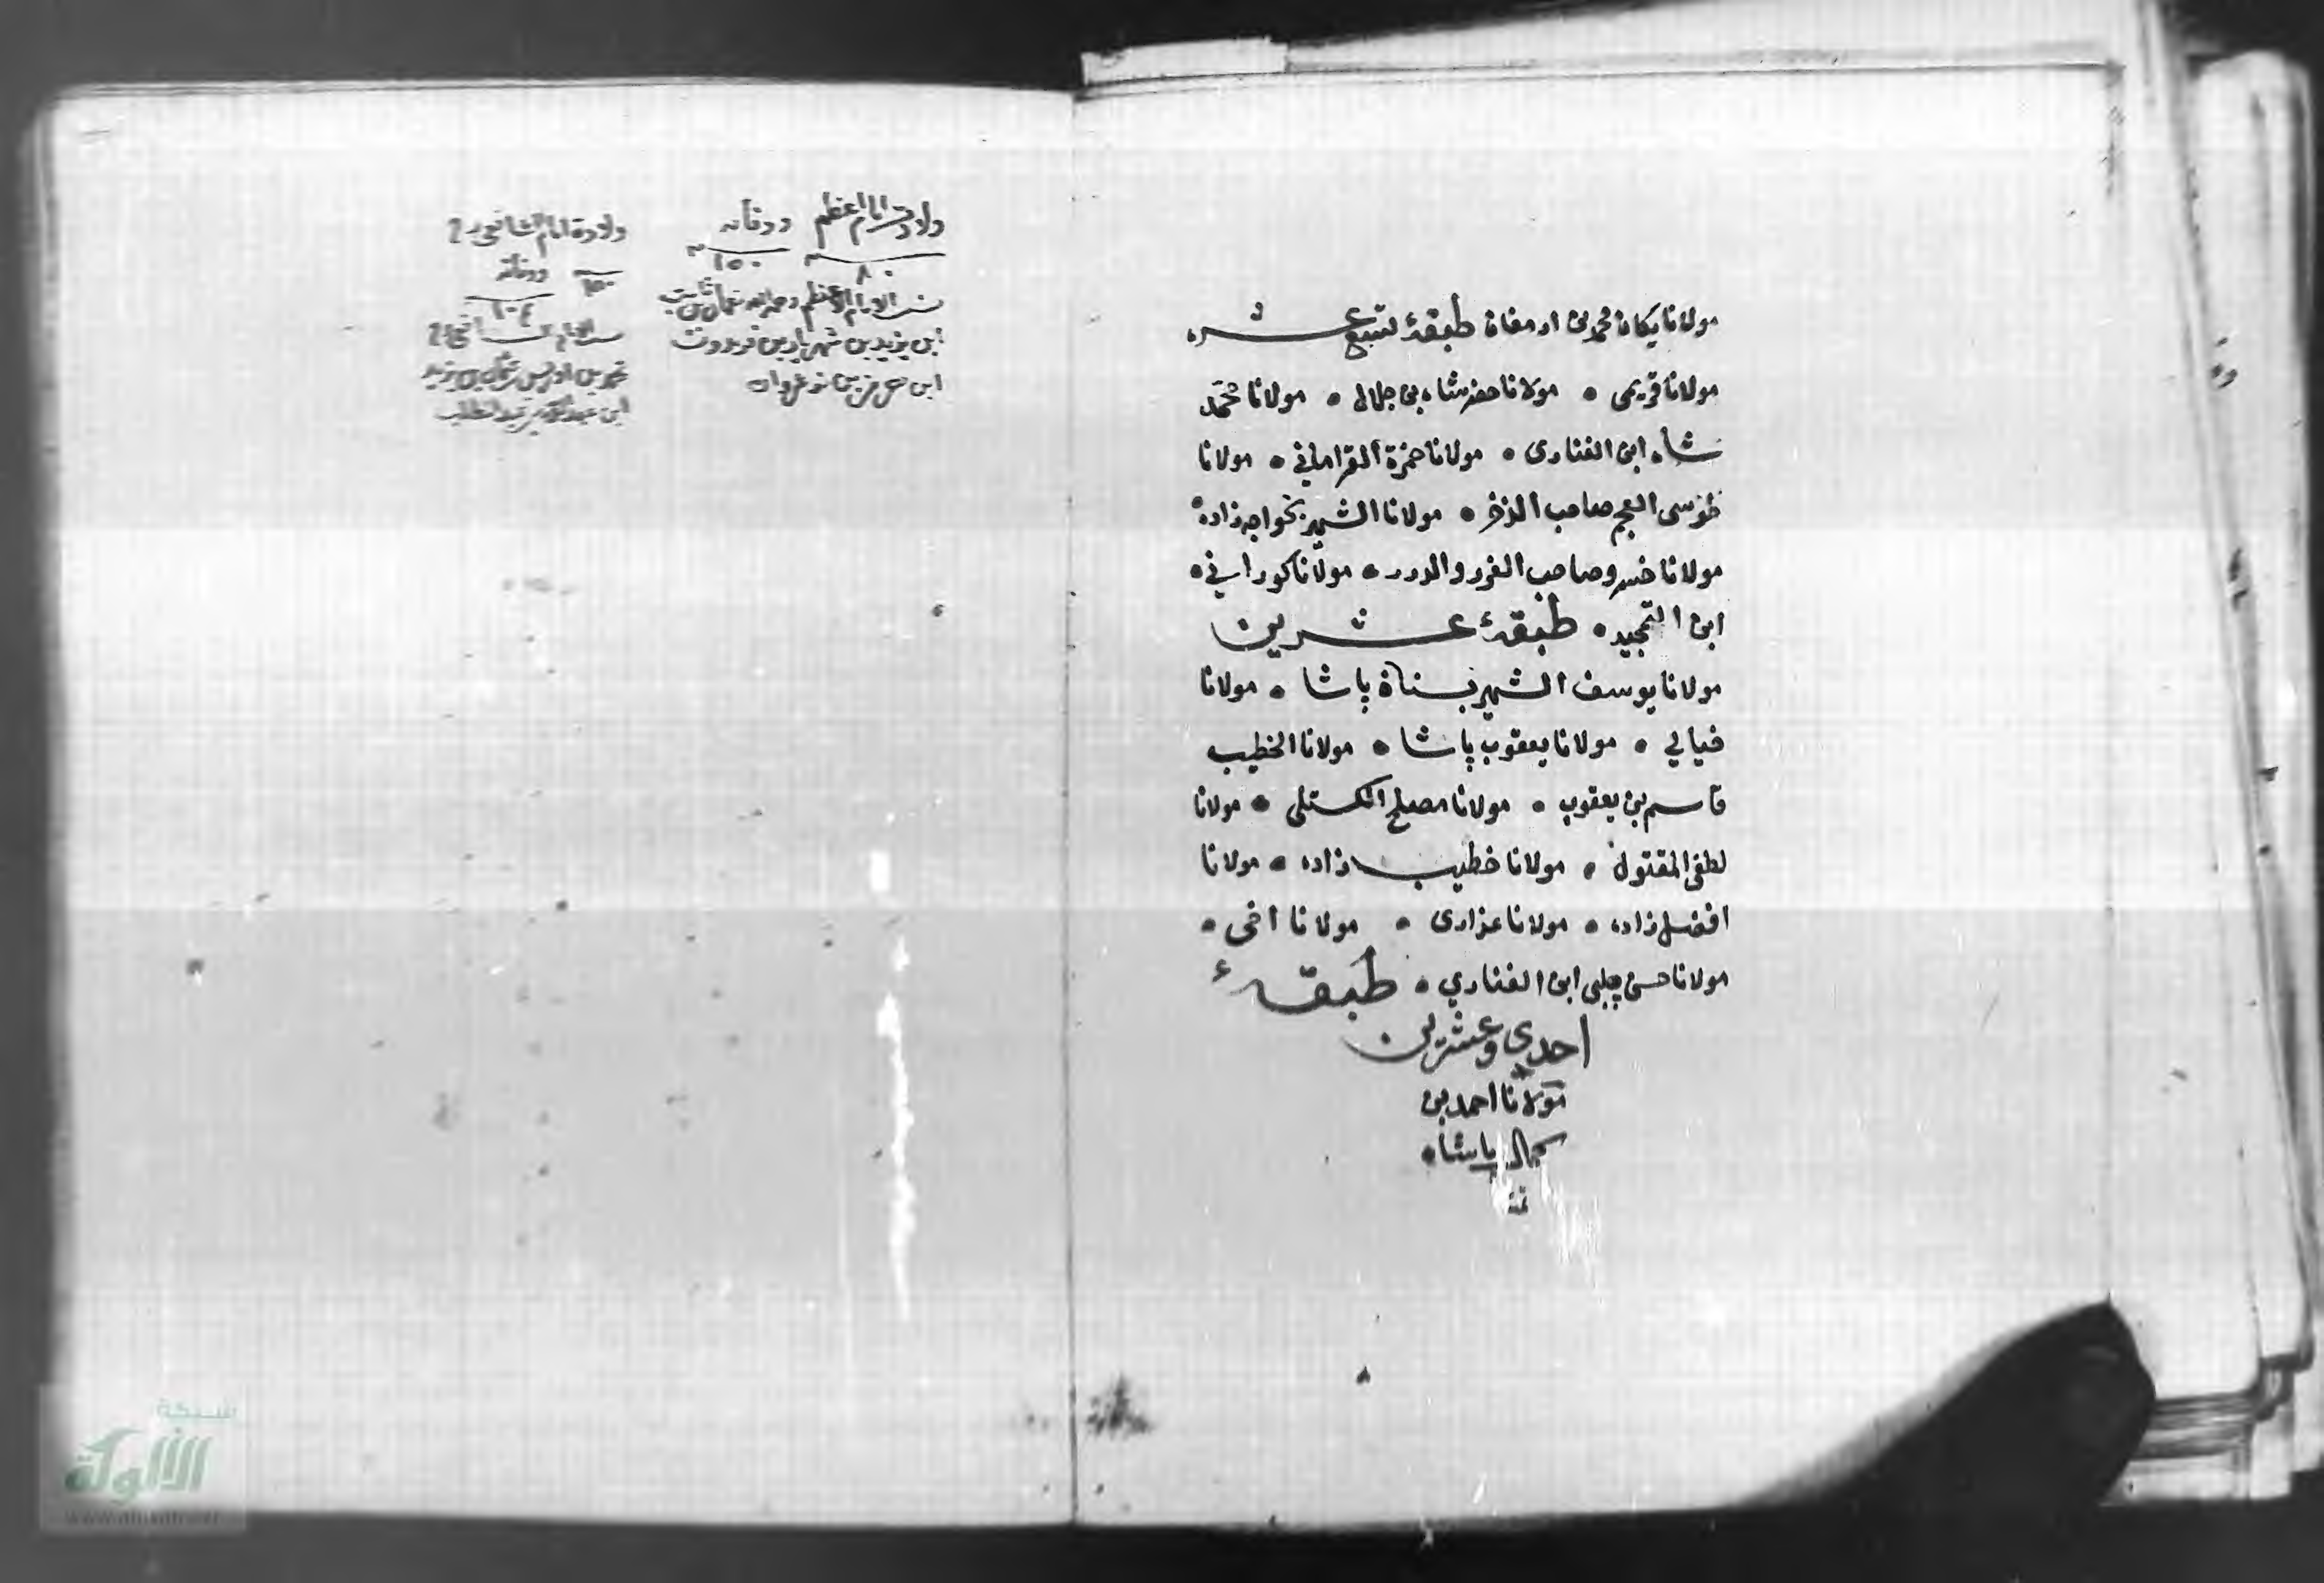 مولانا يكان محمد بن ارمغان طبقۀ تسع عشره
مولانا قريمى • مولانا حضرشاه بن جلال • مولانا محمد
شاه ابن الفنارى • مولانا حمزة القراماني • مولانا
طوسى العجم صاحب الذخر • مولانا الشهير بخواجه زاده •
مولانا خسرو صاحب الغرر والدرر • مولانا كوراني •
ابن التمجيد • طبقۀ عشرين
مولانا يوسف الشهير بسنان پاشا • مولانا
خيالي • مولانا يعقوب پاشا • مولانا الخطيب
قاسم بن يعقوب • مولانا مصلح الكستلى • مولانا
لطفى المقتول • مولانا خطيب زاده • مولانا
افضل زاده • مولانا عزارى • مولانا اخى •
مولانا حسن چلبى ابن الفناري • طبقۀ
احدى وعشرين
مولانا احمد بن
كمال پاشا •
تمت
ولادت امام اعظم ووفاته
٨٠ ١٥٠
نسب الامام الاعظم رحمه الله نعمان بن ثابت
ابن يزيد بن شهريار بن
ابن بن نوشروان
ولادة امام الشافعى رح
١٥٠ ووفاته
٢٠٤
محمد بن ادريس بن
ابن عبد المطلب
شبكة
الألوكة
www.alukah.net